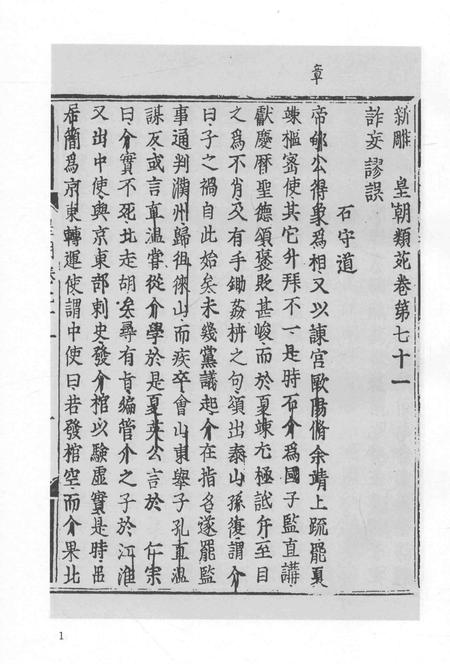 章
新雕　皇朝類苑卷第七十一
詐妄謬誤
石守道
帝郇公得象爲相又以諫官歐陽脩余靖上疏罷夏
竦樞密使其它升拜不一是時石介爲國子監直講
獻慶曆聖德頌褒貶甚峻而於夏竦尤極詆斥至目
之爲不肖又有手鋤姦枿之句頌出泰山孫復謂介
曰子之禍自此始矣未幾黨議起介在指名遂罷監
事通判濮州歸徂徠山而疾卒會山東舉子孔直温
謀反或言直温嘗從介學於是夏英公言於　仁宗
曰介實不死北走胡矣尋有旨編管介之子於江淮
又出中使與京東部刺史發介棺以驗虛實是時吕
居簡爲京東轉運使謂中使曰若發棺空而介果北
1